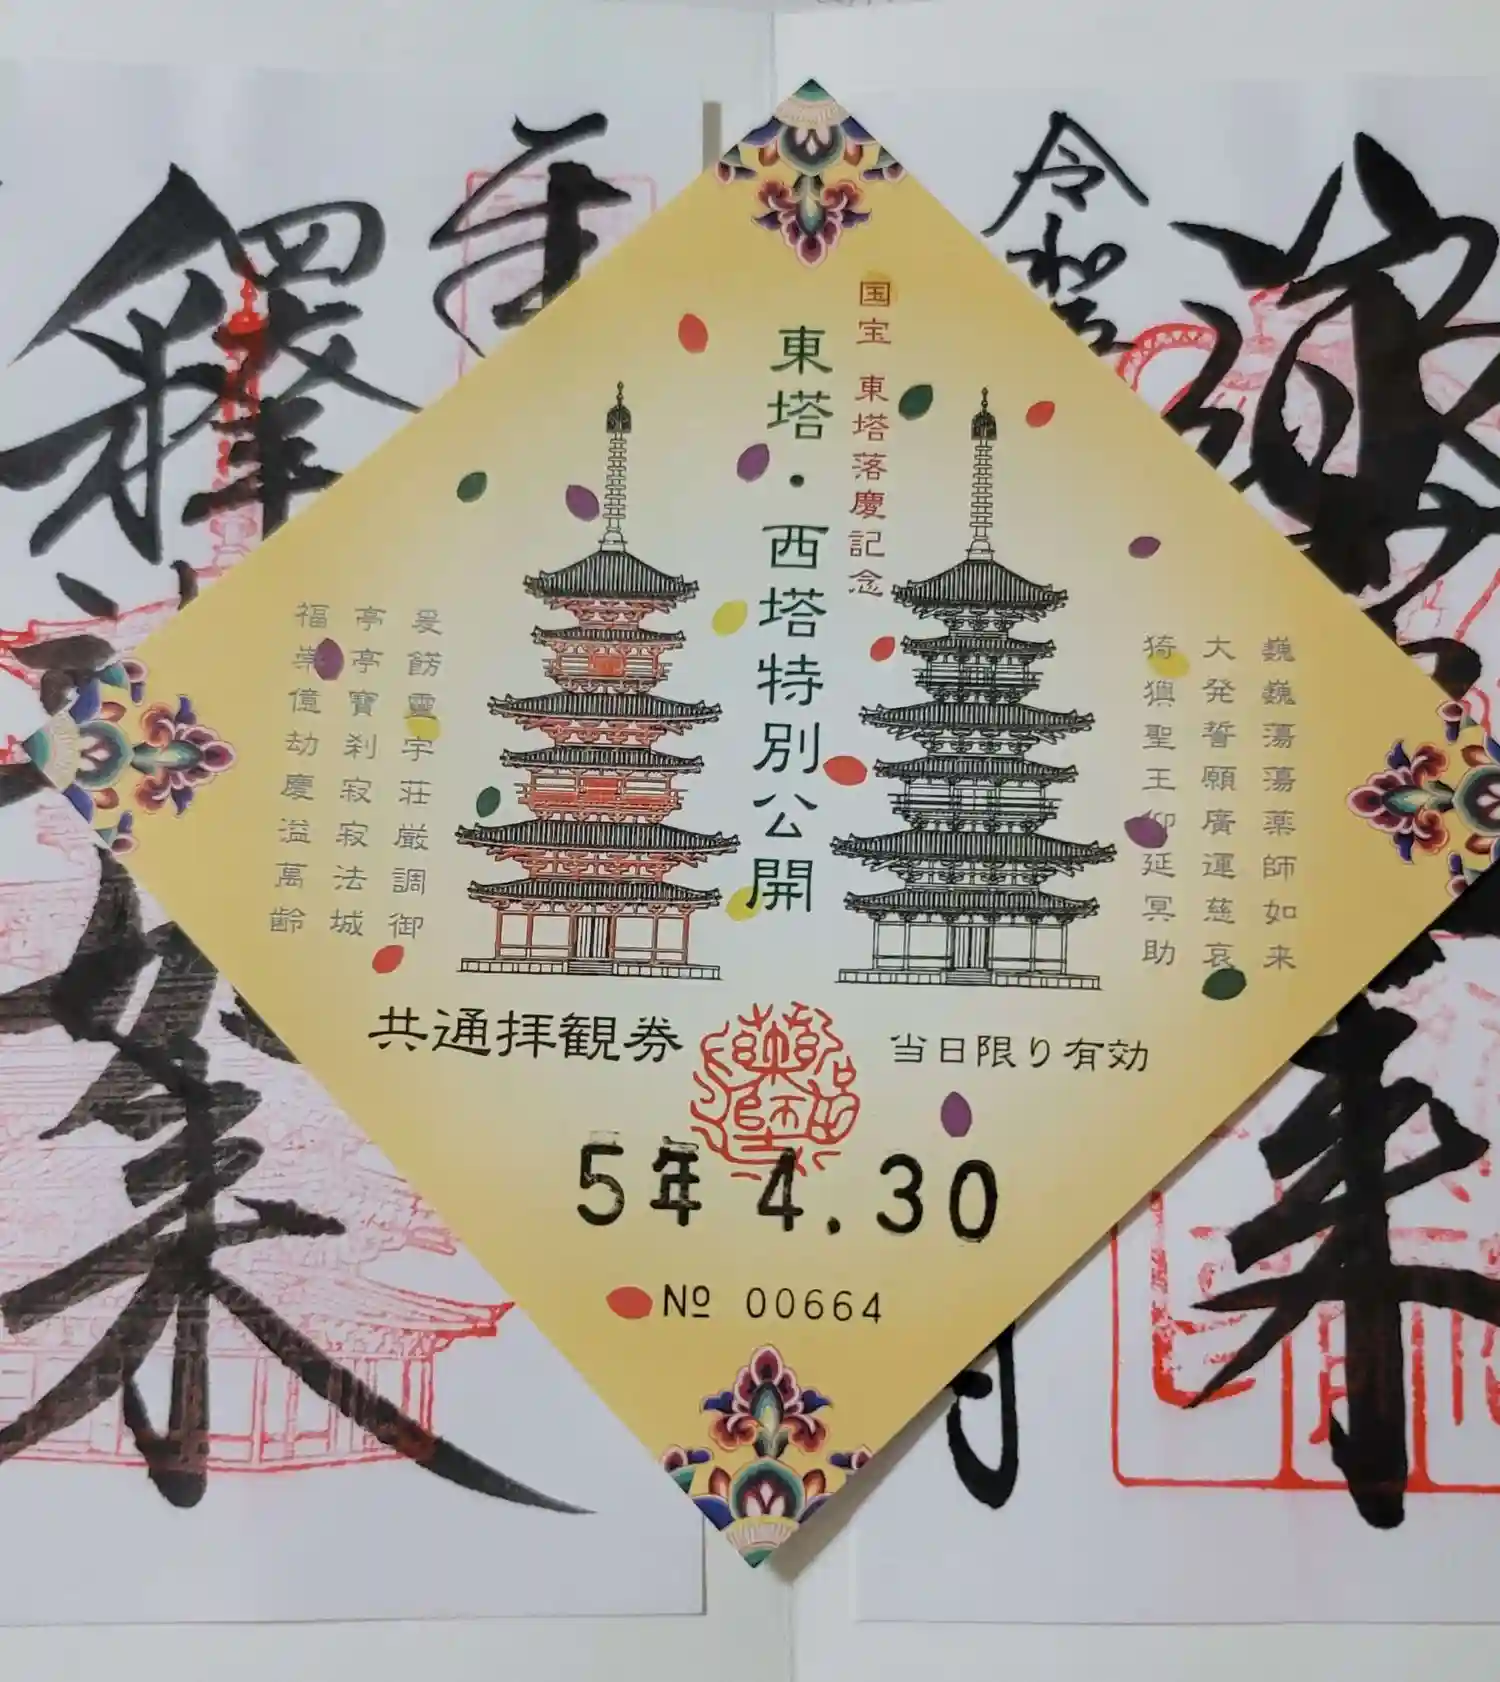 国宝 東塔落慶記念
東塔・西塔特別公開
巍巍蕩蕩薬師如来
大発誓願廣運慈哀
猗輿聖王仰延冥助
爰餝靈宇荘厳調御
亭亭寶刹寂寂法城
福崇億劫慶溢萬齢
共通拝観券
当日限り有効
5年 4.30
№ 00664
令和
釋
来
来